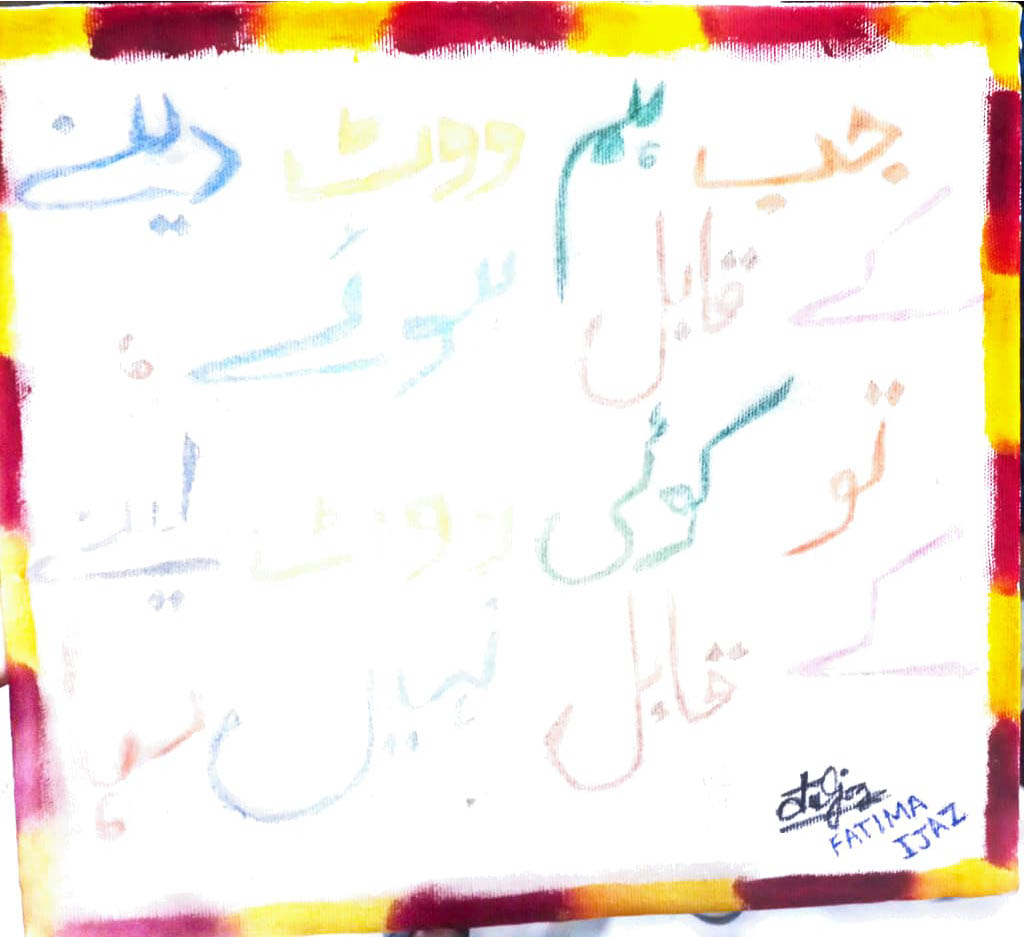 جب ہم ووٹ دینے
کے قابل ہوئے ،
تو کوئی ووٹ لینے
کے قابل نہیں ہوا
FATIMA
IJAZ